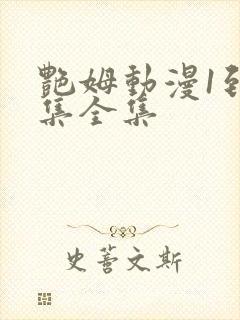 艷姆動漫1到
集全集
史蒼文斯